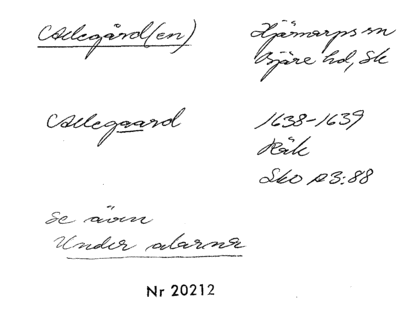 Allegård(en) Hjärnarps sn
Bjäre hd, Sk
Allegaard 1638-1639
Räk
Sko A3:88
Se även
Under alarna
Nr 20212